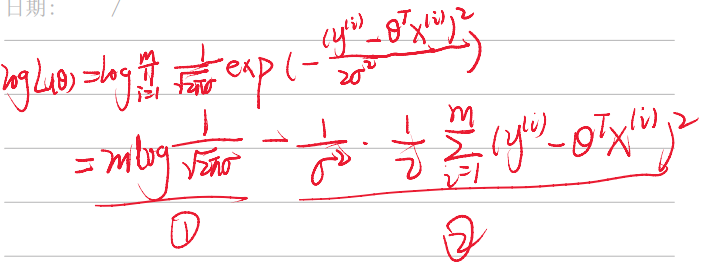 日期: /
log L(θ) = log ∏_{i=1}^{m} \frac{1}{\sqrt{2π}σ} exp(-\frac{(y^{(i)} - θ^T x^{(i)})^2}{2σ^2})
= m log \frac{1}{\sqrt{2π}σ} - \frac{1}{σ^2} · \frac{1}{2} ∑_{i=1}^{m} (y^{(i)} - θ^T x^{(i)})^2
① ②